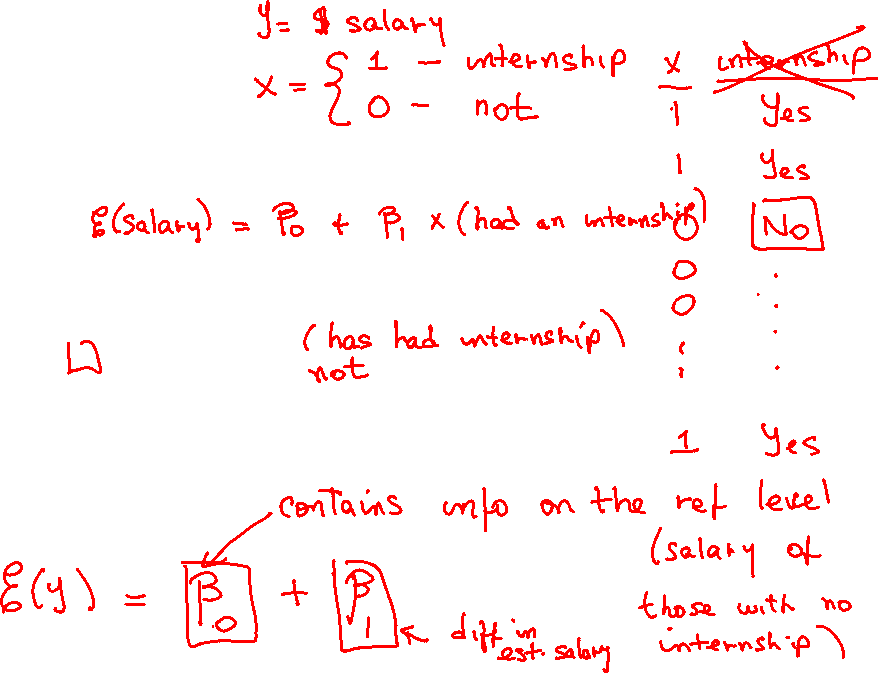 y = $ salary
x = { 1 – internship
0 – not
x internship
1 Yes
1 Yes
E(salary) = β₀ + β₁ × (had an internship)
0 No
0 .
0 . .
(has had internship)
not
: .
1 Yes
contains info on the ref level
(salary of
those with no
internship)
E(y) = β₀ + β₁
diff in
est. salary